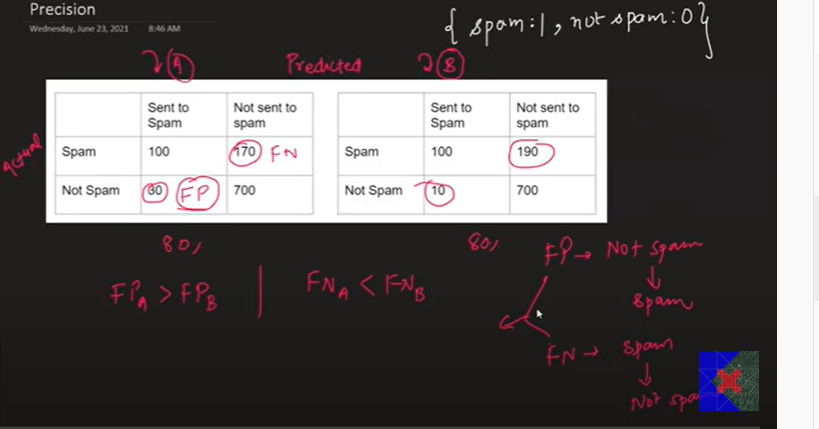 Precision
Wednesday, June 23, 2021 8:46 AM
{ spam:1, not spam:0}
A Predicted B
Actual
Sent to Spam Not sent to spam
Spam 100 170 FN
Not Spam 30 FP 700
Sent to Spam Not sent to spam
Spam 100 190
Not Spam 10 700
80% 80%
FP_A > FP_B | FN_A < FN_B
FP → Not spam
↓
spam
FN → spam
↓
Not spam